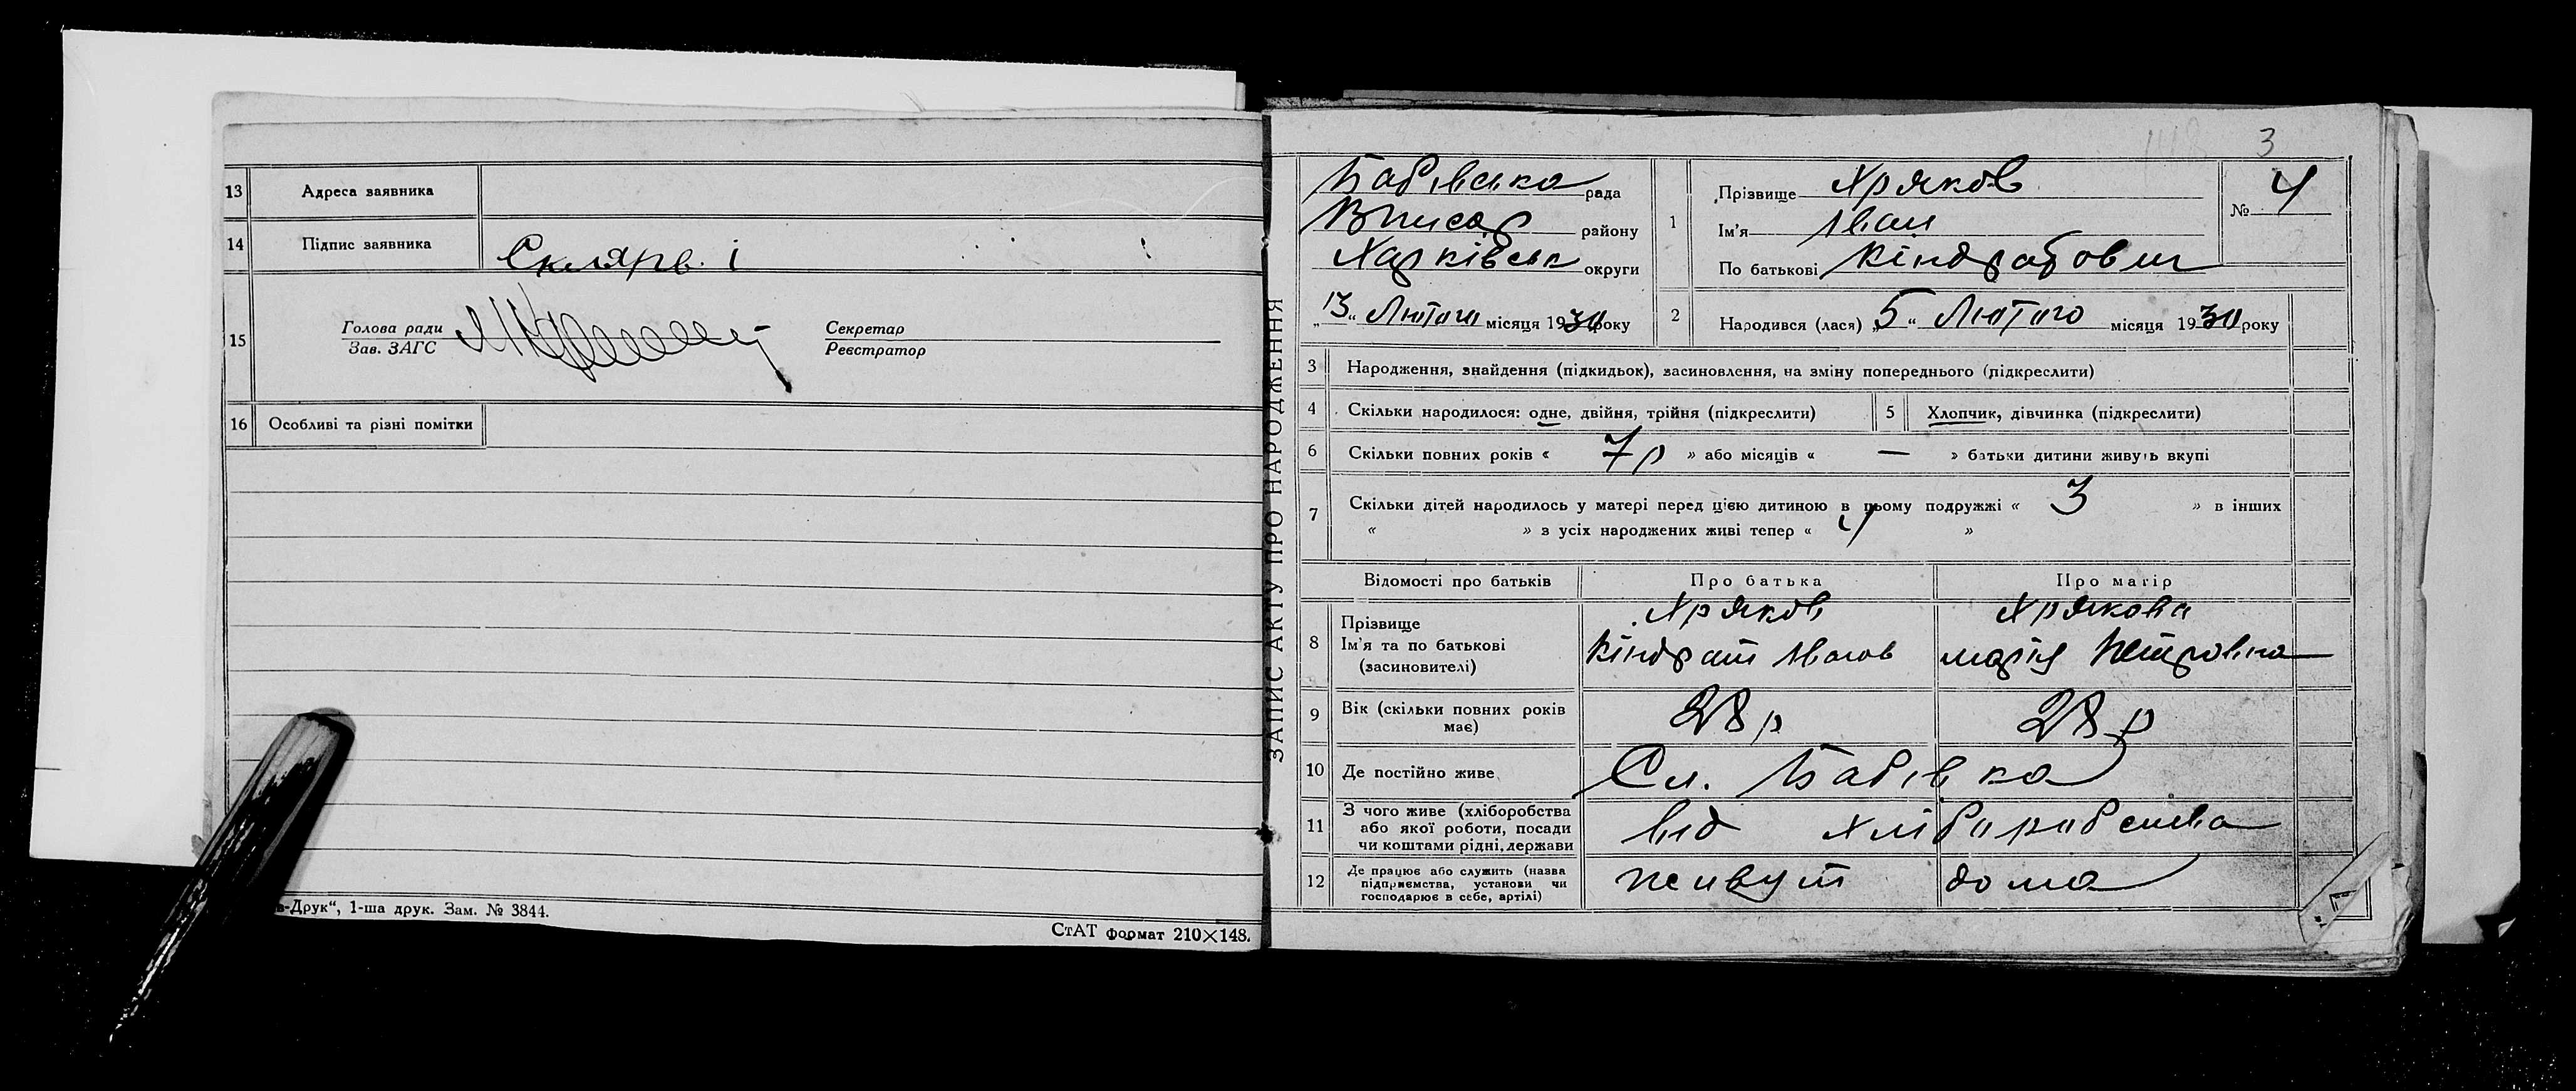 13 Адреса заявника
14 Підпис заявника Склярв. і
15 Голова ради
Зав. ЗАГС
Секретар
Реєстратор
16 Особливі та різні помітки
в-Друк“, 1-ша друк. Зам. № 3844.
СтАТ формат 210×148.
ЗАПИС АКТУ ПРО НАРОДЖЕННЯ
3
Бабівська рада
району
Харківськ округи
„13“ Лютого місяця 1930 року
1 Прізвище Хряков
Ім'я Іван
По батькові Кіндратович
№ 4
2 Народився (лася) „5“ Лютого місяця 1930 року
3 Народження, знайдення (підкидьок), засиновлення, на зміну попереднього (підкреслити)
4 Скільки народилося: одне, двійня, трійня (підкреслити) 5 Хлопчик, дівчинка (підкреслити)
6 Скільки повних років « 7 р » або місяців « — » батьки дитини живуть вкупі
7 Скільки дітей народилось у матері перед цією дитиною в цьому подружжі « 3 » в інших
« » з усіх народжених живі тепер « 4 »
Відомості про батьків Про батька Про матір
8 Прізвище Хряков Хрякова
Ім'я та по батькові Кіндрат Іванов Марія Петровна
(засиновителі)
9 Вік (скільки повних років має) 28 р 28 р
10 Де постійно живе Сл. Бабівка
11 З чого живе (хліборобства
або якої роботи, посади
чи коштами рідні, держави від хліборобства
12 Де працює або служить (назва
підприємства, установи чи
господарює в себе, артілі) живут дома